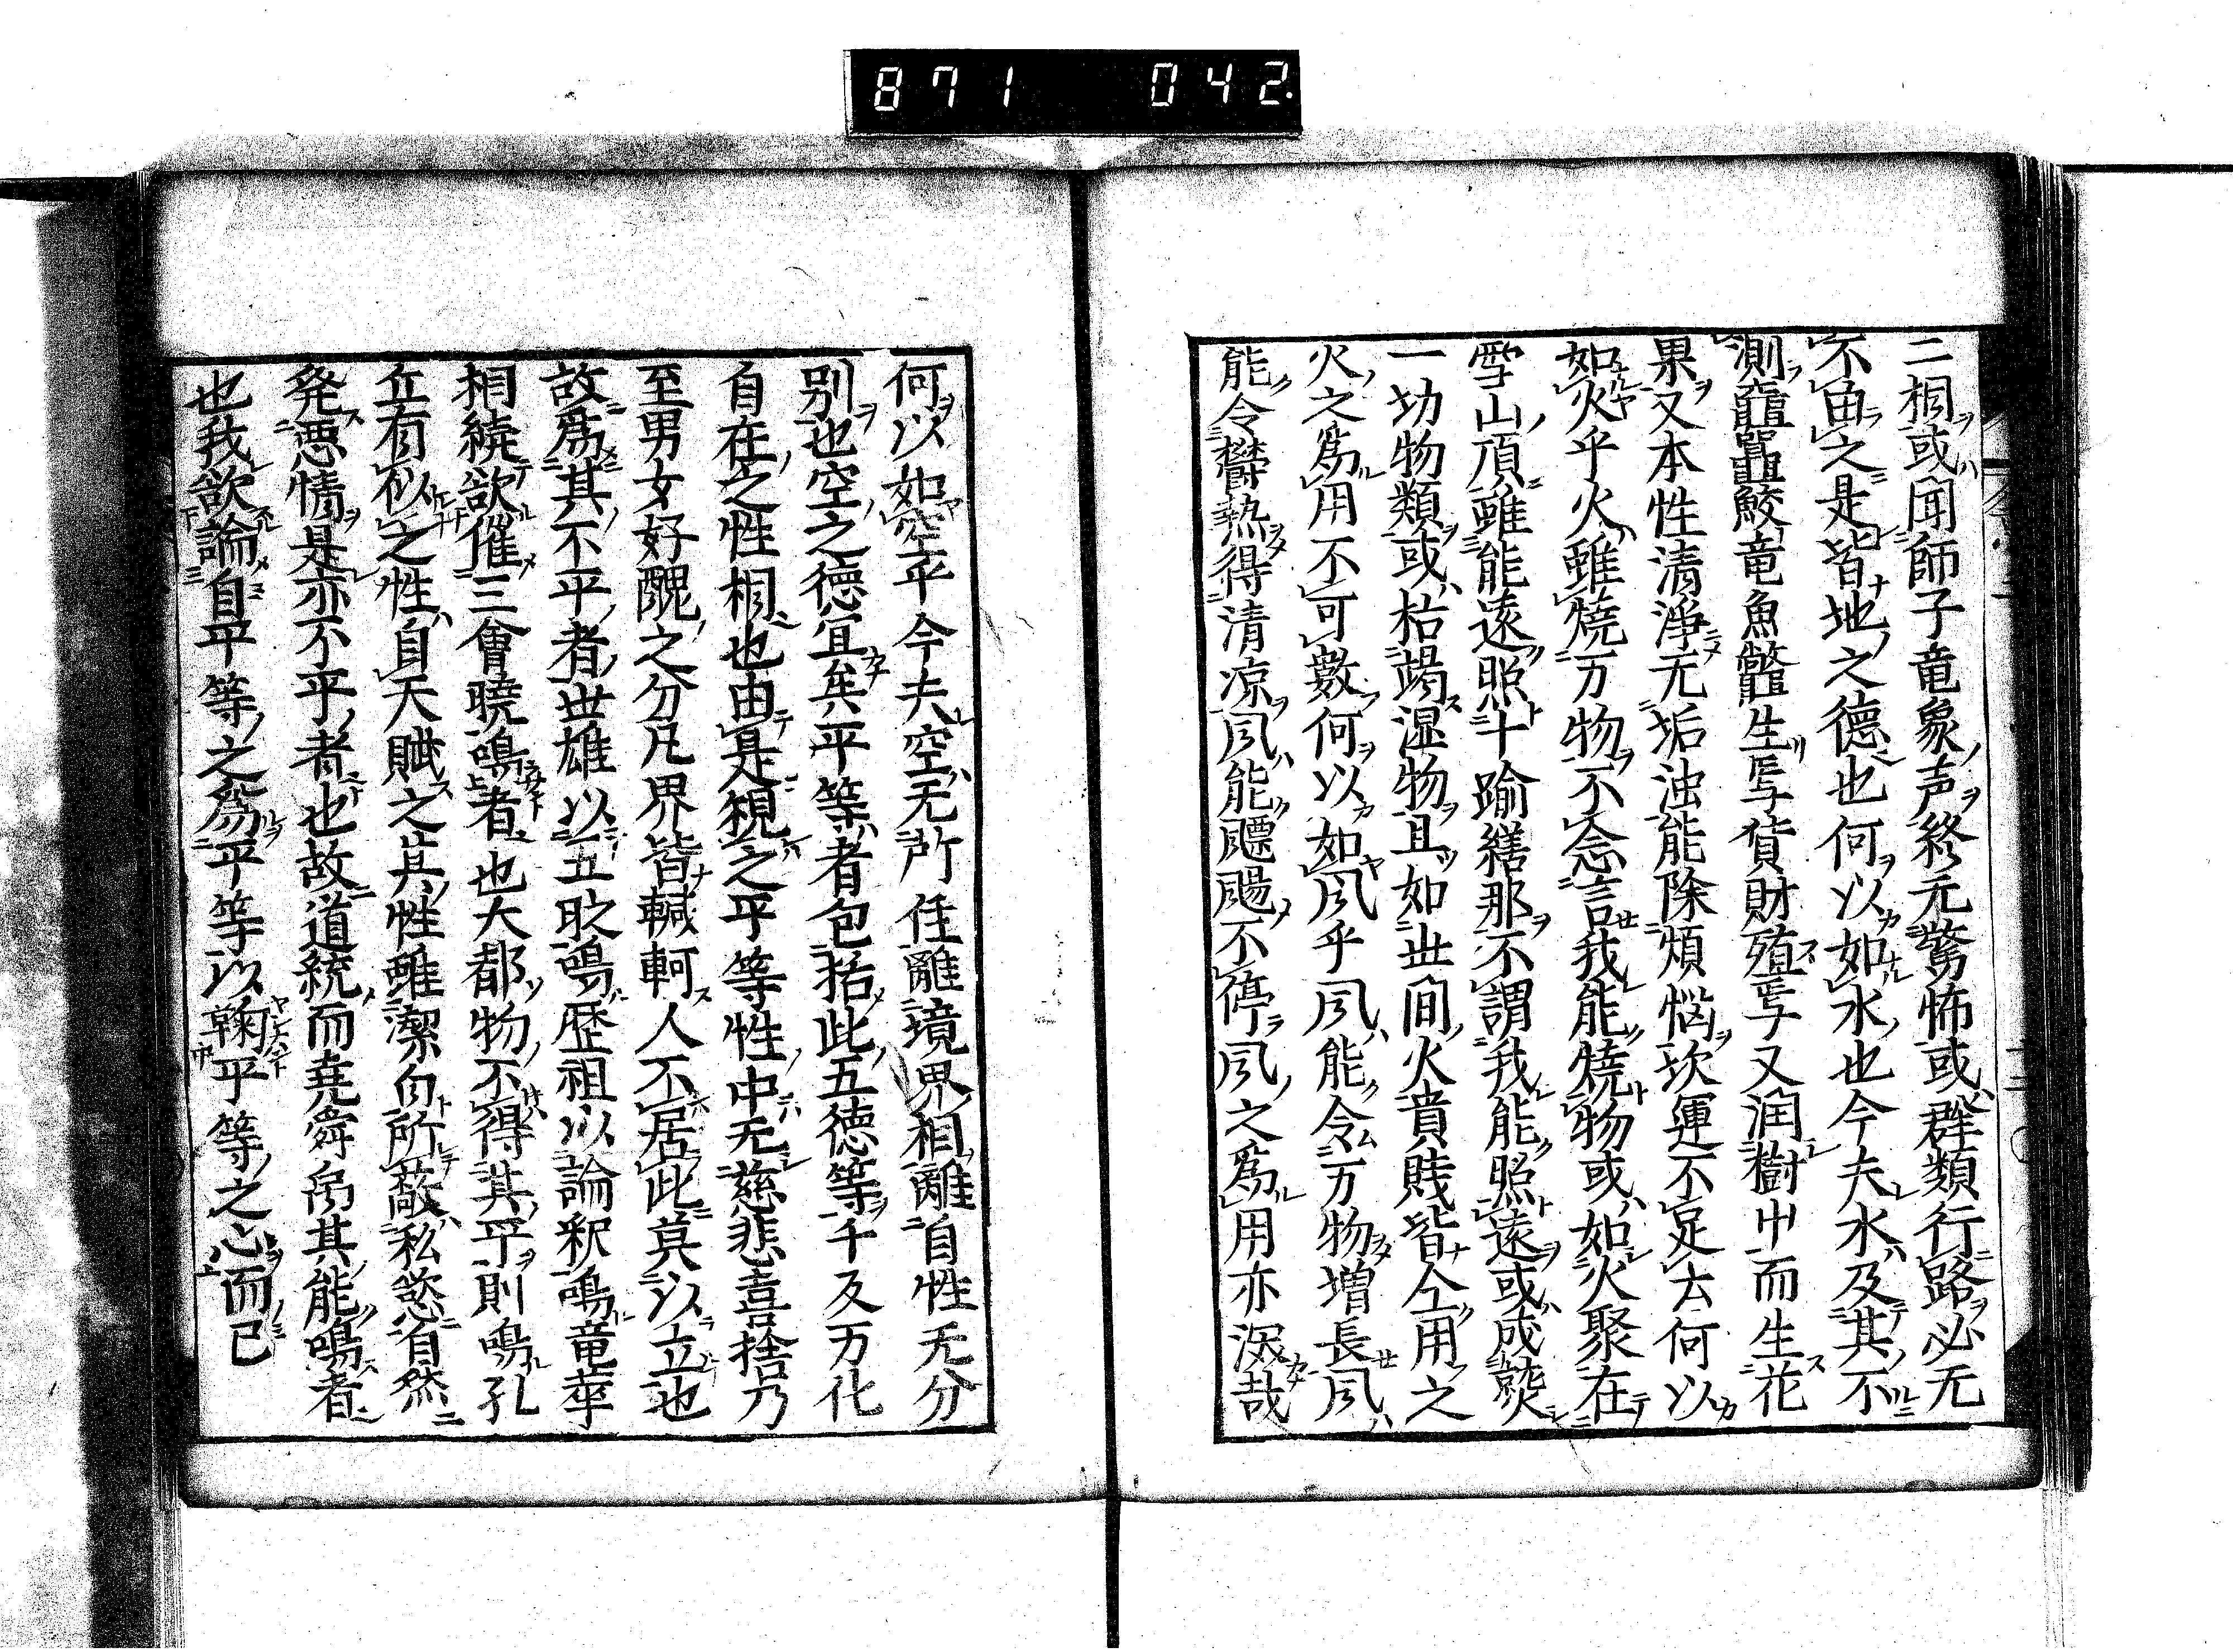 871 042.
二相或聞師子竜象声終无驚怖或群類行路必无
不由之是皆地之德也何以如水也今夫水及其不
測黿鼉鮫竜魚鼈生焉貨財殖焉又潤樹中而生花
果又本性清淨无垢浊能除煩悩坎運不足去何以
如火乎火雖焼万物不念言我能焼物或如火聚在
雪山頂雖能遠照十踰繕那不謂我能照遠或成
一切物類或枯竭湿物且如世间火貴賎皆今用之
火之為用不可數何以如风乎风能令万物増長风
能令欝熱得清凉风能飃颺不停风之為用亦深哉
何以如空乎今夫空无所住離境界相離自性无分
别也空之德冝矣平等者包括此五德等千反万化
自在之性相也由是観之平等性中无慈悲喜捨乃
至男女好醜之分凡界皆轗軻人不居此莫以立也
故爲其不平者世雄以五时鳴歴祖以論釈鳴竜華
相續欲催三會曉鳴者也大都物不得其平則鳴孔
丘有似之性自天賦之其性雖潔白所蔽私慾自然
発悪情是亦不平者也故道統而堯舜禹其能鳴者
也我欲論自平等之為平等以鞠平等之心而已